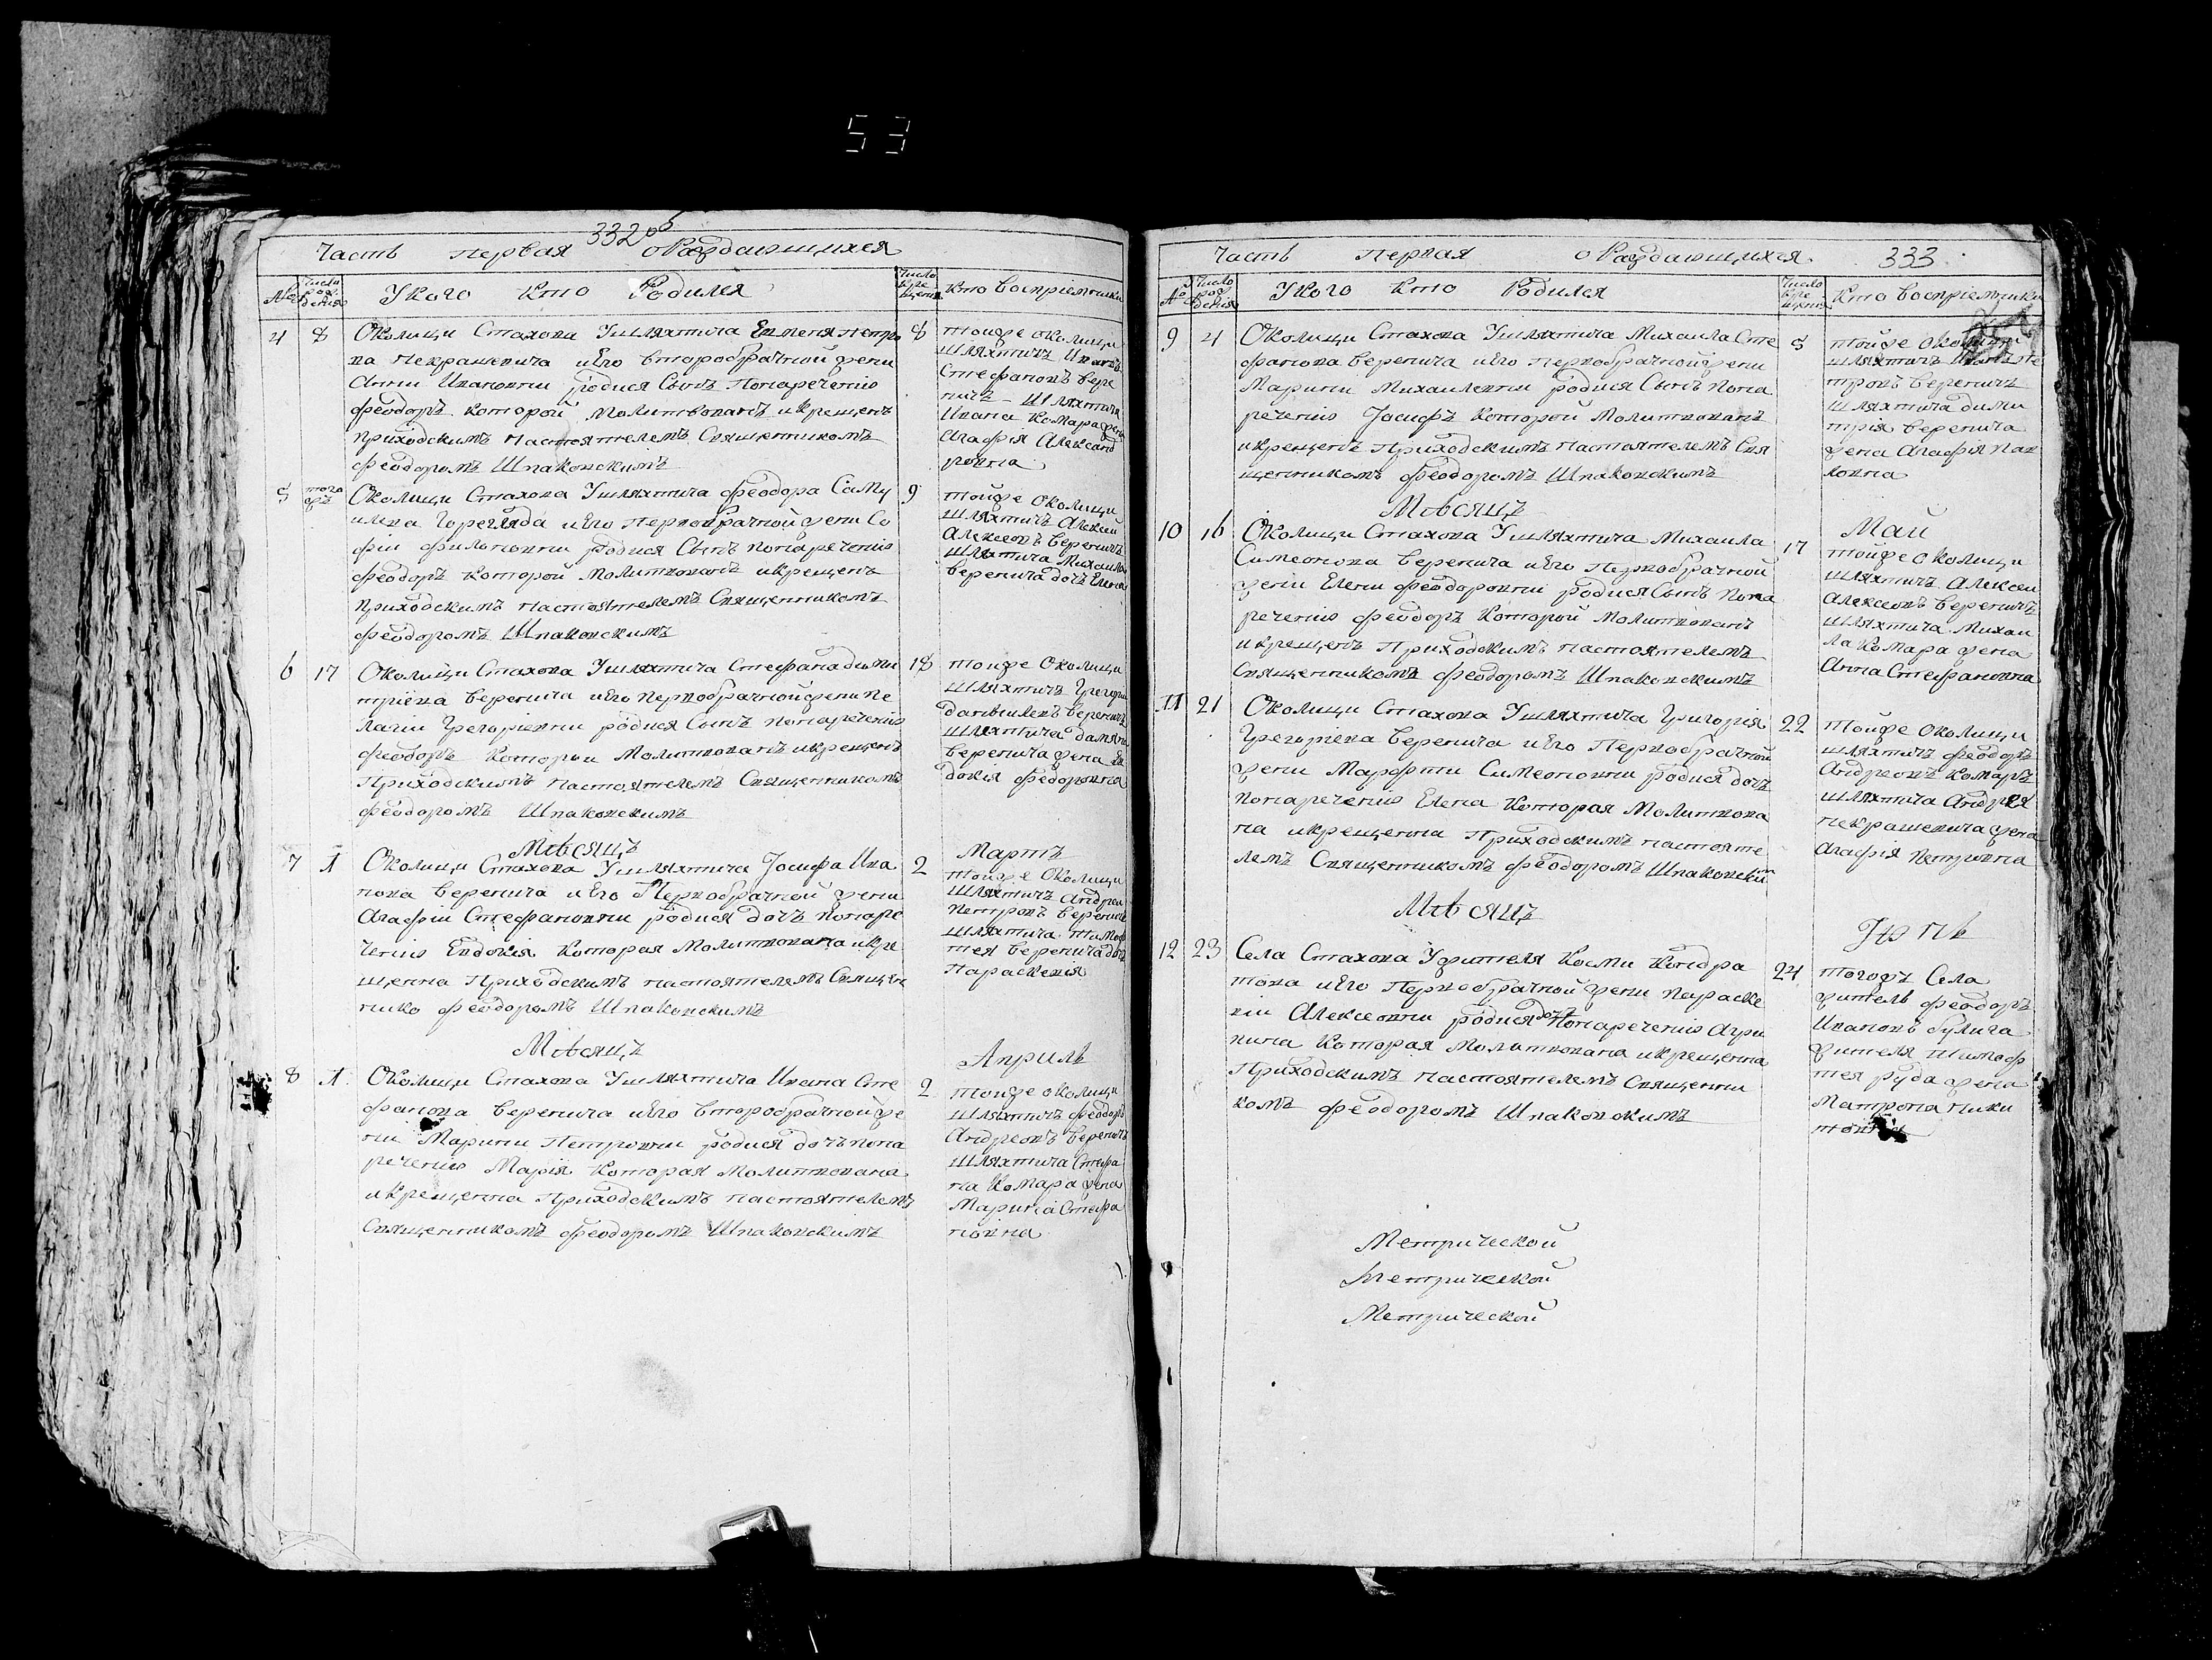 53
332 об
Часть первая о Раждающихся
№ Число рождения У кого Кто Родился Число крещения Кто Восприемники
4 8 Околици Стахова У шляхтича Евменя Петро
ва Некрашевича и Его второбрачной жени
Анни Ивановни родися Сынъ Понаречению
Феодоръ которой Молитвованъ и крещенъ
Приходскимъ настоятелемъ Священникомъ
Феодоромъ Шпаковскимъ
8 тойже околици
шляхтичъ Иванъ
Стефановъ Вере
ничъ шляхтича
Ивана Комара жена
Агафія Александ
ровна
5 тогожъ Околици Стахова У шляхтича Феодора Саму
илева Горегляда и Его Первобрачной жени Со
фіи Фильповни родися Сынъ Понаречению
Феодоръ которой Молитвованъ и крещенъ
Приходскимъ настоятелемъ Священникомъ
Феодоромъ Шпаковскимъ
9 тойже околици
шляхтичъ Алексей
Алексеевъ Вереничъ
шляхтича Михаила
Веренича дочъ Елена
6 17 Околици Стахова У шляхтича Стефана Дими
тріева Веренича и Его Первобрачной жени Пе
лагіи Григоріевни родися Сынъ Понаречению
Феодоръ которои Молитвованъ и крещенъ
Приходскимъ настоятелемъ Священникомъ
Феодоромъ Шпаковскимъ
18 тойже Околици
шляхтичъ Григори
Даниилевъ Вереничъ
шляхтича
Веренича жена Ев
докія Феодоровна
Мѣсяцъ Мартъ
7 1 Околици Стахова У шляхтича Іосифа Ива
нова Веренича и Его Первобрачной жени
Агафіи Стефановни родися дочъ Понаре
чению Евдокія Которая Молитвована и кре
щенна Приходскимъ настоятелемъ Священ
нико Феодоромъ Шпаковскимъ
2 тойже Околици
шляхтичъ Андреи
Петровъ Вереничъ
шляхтича Тимоф
тея Веренича дочъ
Параскевія
Мѣсяцъ Априль
8 1 Околици Стахова У шляхтича Ивана Сте
фанова Веренича и Его второбрачной же
ни Марини Петровни родися дочъ пона
речению Марія которая Молитвована
и крещенна Приходскимъ настоятелемъ
Священникомъ Феодоромъ Шпаковскимъ
2 тойже околици
шляхтичъ Феодоръ
Андреевъ Вереничъ
шляхтича Стефа
на Комара жена
Марина Стефа
новна
Часть первая о Раждающихся 333
№ Число рождения У кого Кто Родился Число крещения Кто Восприемники
9 4 Околици Стахова У шляхтича Михаила Сте
фанова Веренича и Его первобрачной жени
Марини Михаилевни родися Сынъ Пона
речению Іосифъ которой Молитвованъ
и крещенъ Приходскимъ настоятелемъ Свя
щенникомъ Феодоромъ Шпаковскимъ
5 тойже Околици
шляхтичъ Пе
тровъ Вереничъ
шляхтича Дими
трія Веренича
жена Агафія Пав
ловна
Мѣсяцъ Май
10 16 Околици Стахова У шляхтича Михаила
Симеонова Веренича и Его Первобрачной
жени Елени Феодоровни родися Сынъ Пона
речению Феодоръ которой Молитвованъ
и крещенъ Приходскимъ настоятелемъ
Священникомъ Феодоромъ Шпаковскимъ
17 тойже околици
шляхтичъ Алексеи
Алексеевъ Вереничъ
шляхтича Михаи
ла Комара жена
Анна Стефановна
11 21 Околици Стахова У шляхтича Григорія
Григоріева Веренича и Его Первобрачной
жени Марфти Симеоновни родися дочъ
Понаречению Елена которая Молитвова
на и крещенна Приходскимъ настояте
лемъ Священникомъ Феодоромъ Шпаковскимъ
22 тойже Околици
шляхтичъ Феодоръ
Андреевъ Комаръ
шляхтича Андрея
Некрашевича жена
Агафія Петровна
Мѣсяцъ Іюнь
12 23 Села Стахова У жителя Косми Кондра
това и Его Первобрачной жени Параске
віи Алексеевни родися дочъ Понаречению Агри
пина Которая Молитвована и крещенна
Приходскимъ настоятелемъ Священни
комъ Феодоромъ Шпаковскимъ
24 тогожъ Села
житель Феодоръ
Ивановъ Гулича
жителя Тимоф
тея Руда жена
Матрона Ники
Метрической
Метрической
Метрической